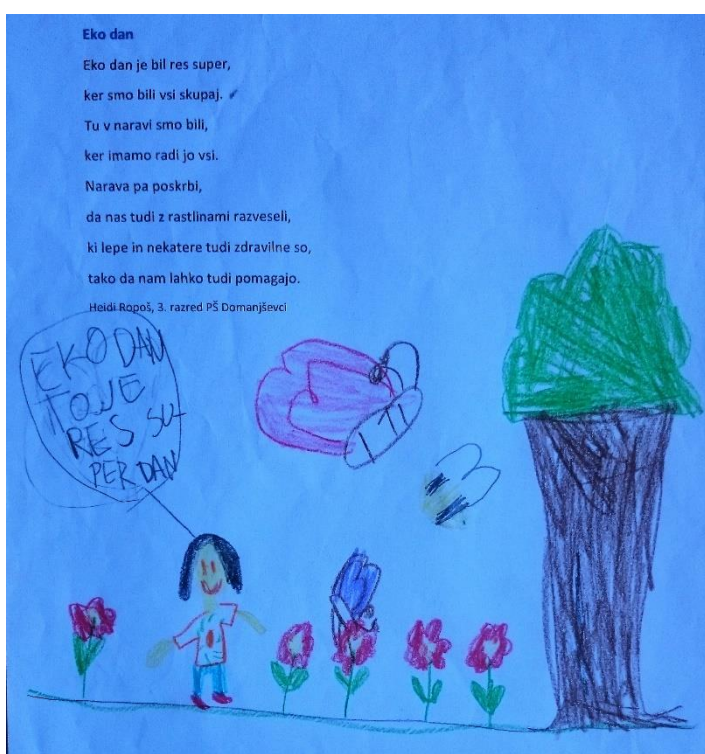 Eko dan
Eko dan je bil res super,
ker smo bili vsi skupaj.
Tu v naravi smo bili,
ker imamo radi jo vsi.
Narava pa poskrbi,
da nas tudi z rastlinami razveseli,
ki lepe in nekatere tudi zdravilne so,
tako da nam lahko tudi pomagajo.
Heidi Ropoš, 3. razred PŠ Domanjševci
EKO DAN
TO JE
RES SU-
PER DAN